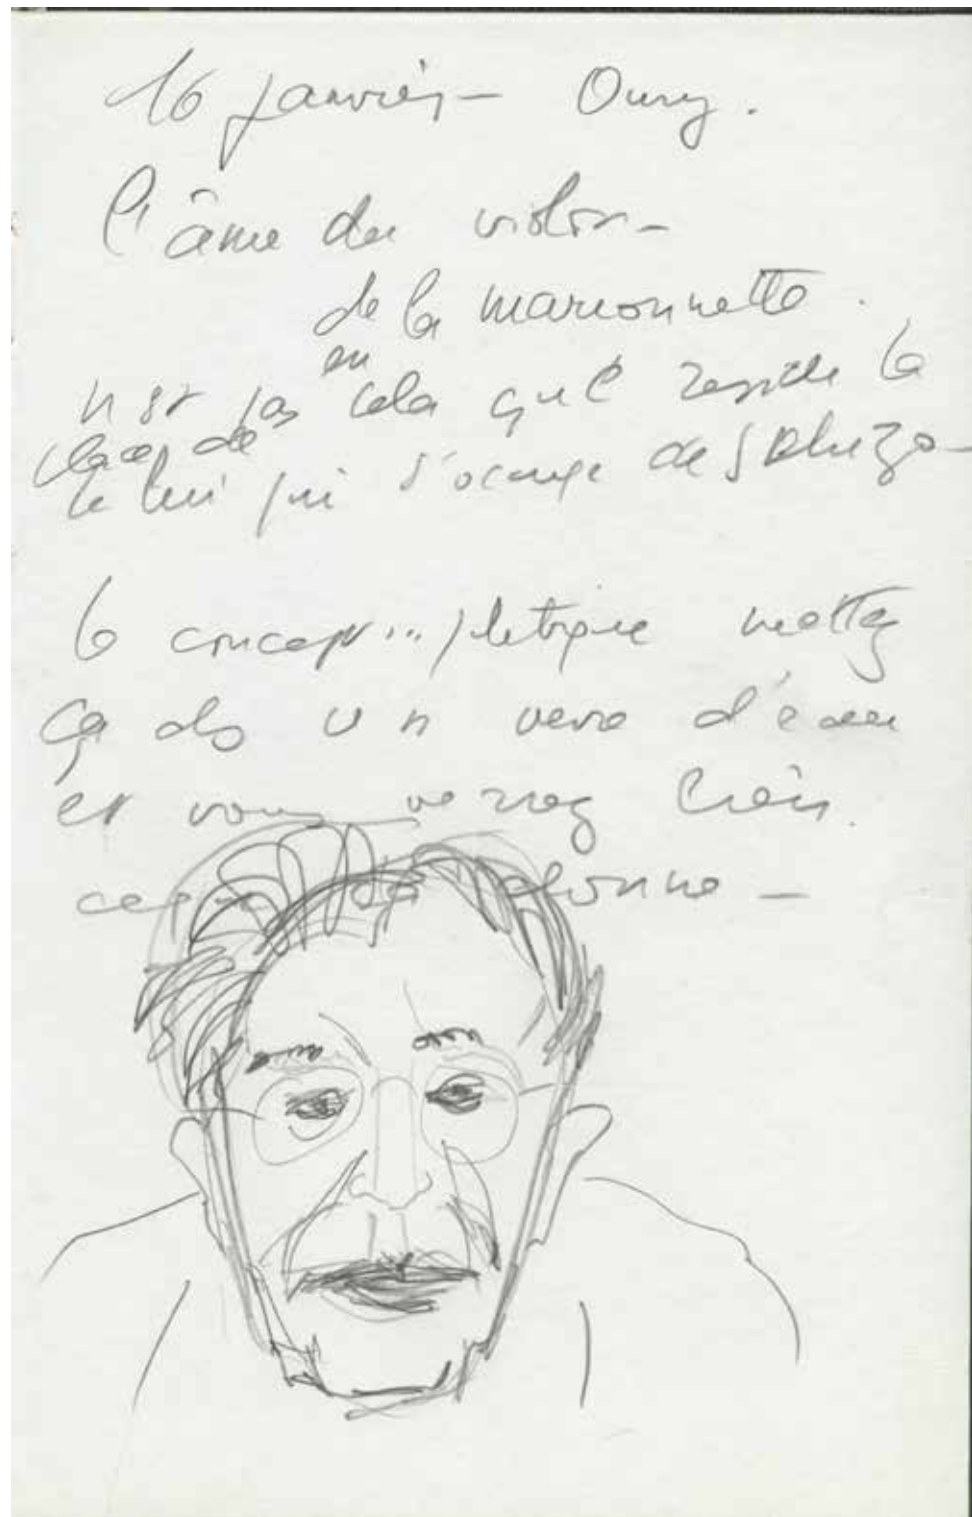 16 janvier – Oury.
l'âme du violon –
de la marionnette.
en
n'est pas cela que réside la
place de
celui qui s'occupe de Schizo –
le concept... mettez
ça ds un verre d'eau
et vous verrez bien
ce que ça donne –